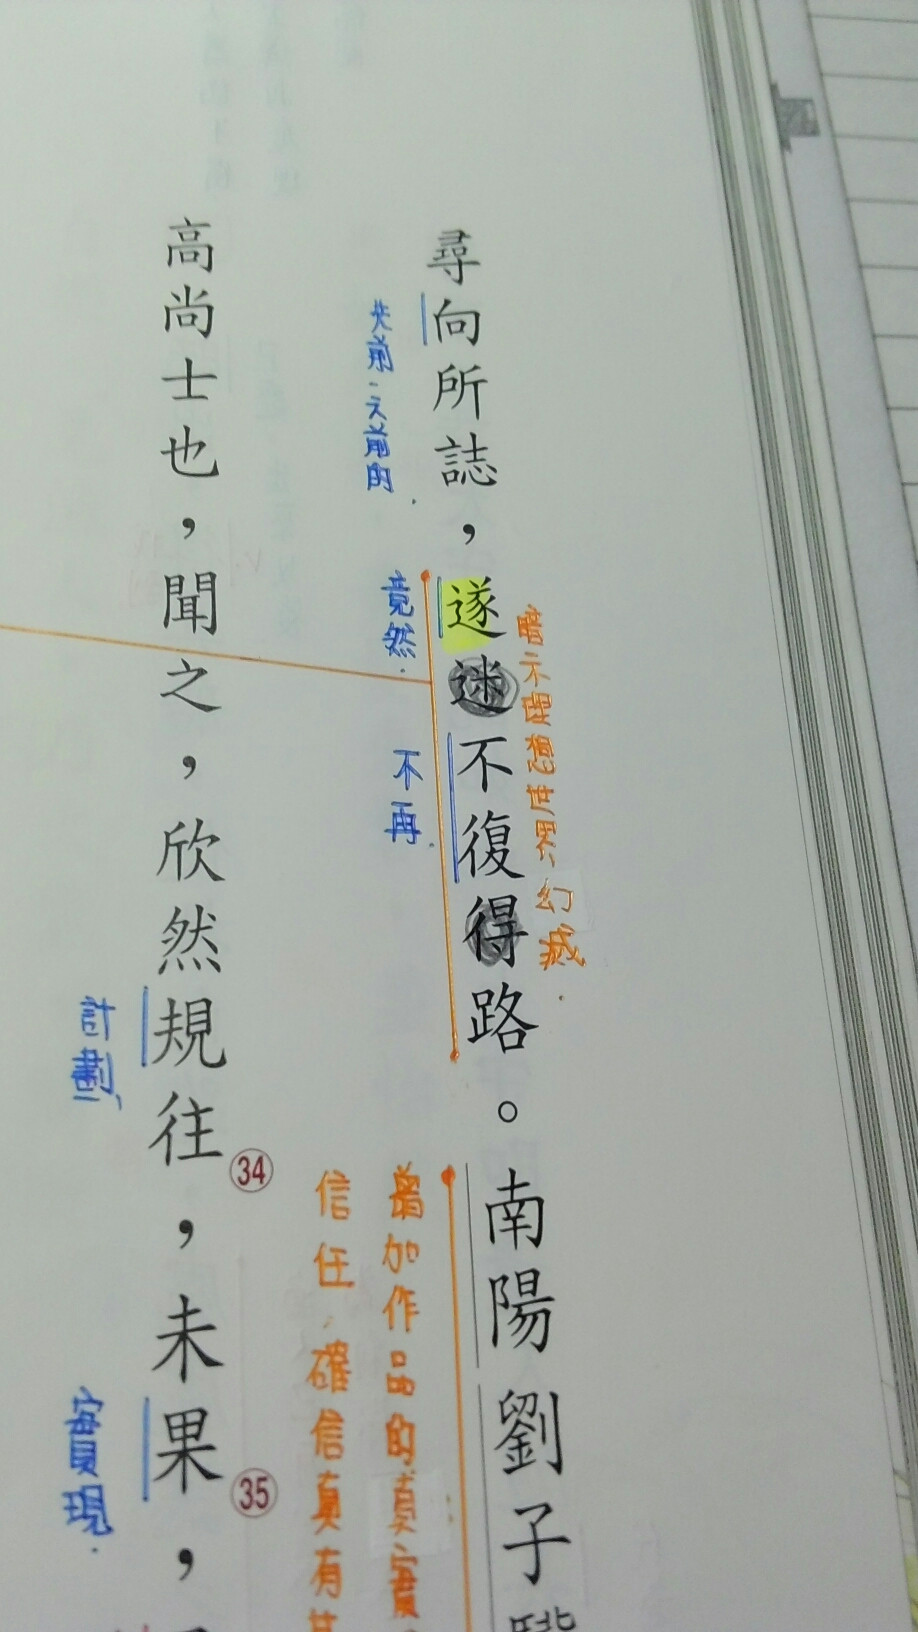 尋向所誌，遂迷不復得路。南陽劉子
先前．之前的．
竟然．
不再．
暗示理想世界、幻滅．
增加作品的真實
信任，確信真有其
高尚士也，聞之，欣然規往㉞，未果㉟，
計劃、
實現．